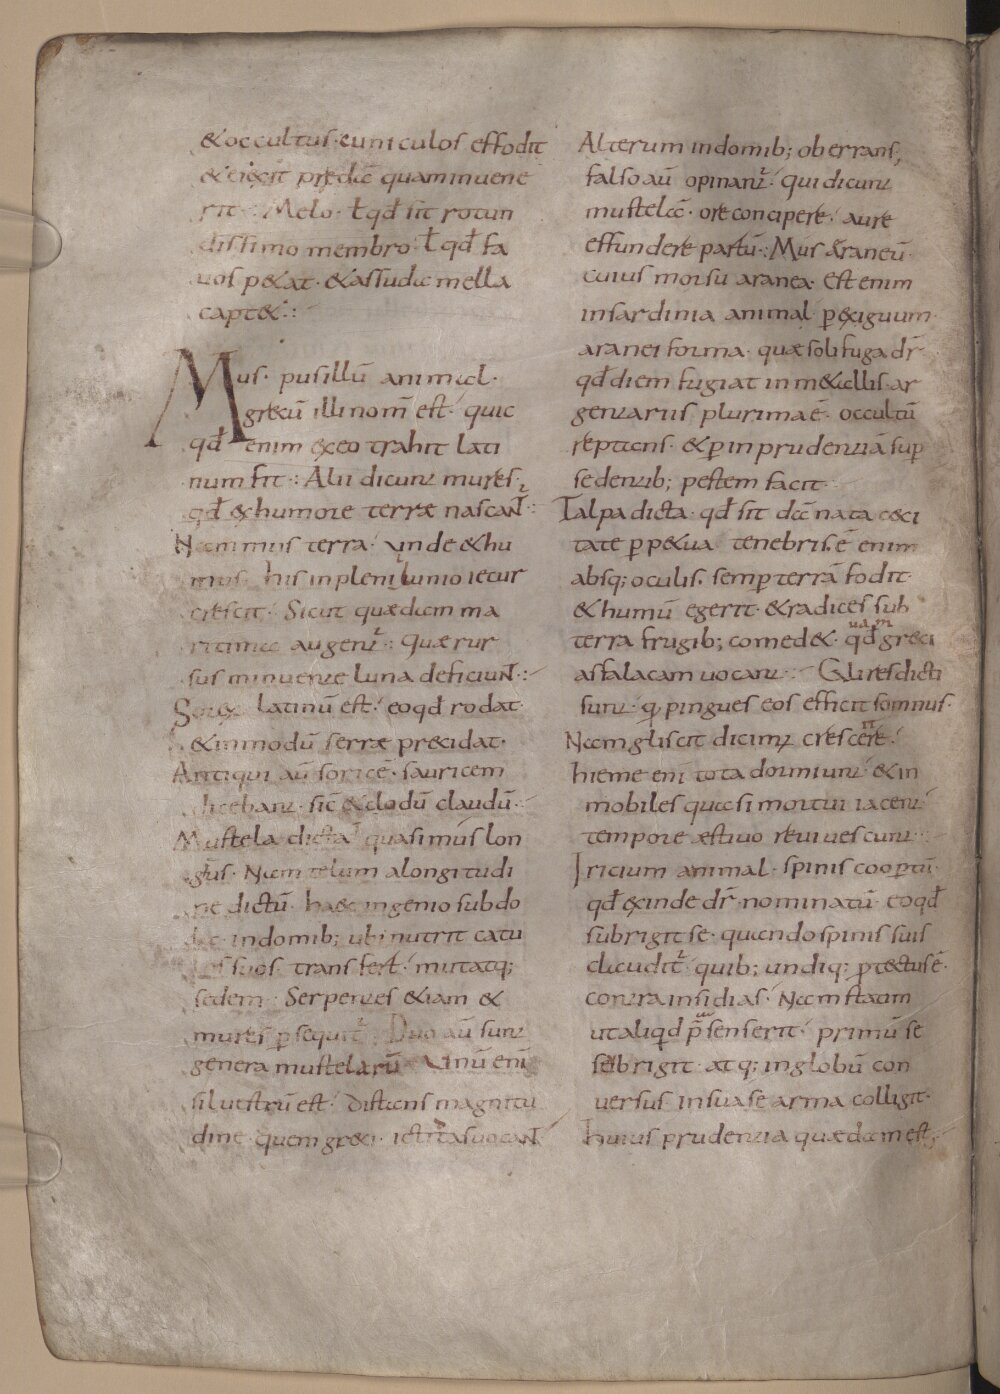 &occultus· cuniculos effodit
& eicit predā quam inuene
rit·:· Melo· ł qđ sit rotun
dissimo membro· ł qđ fa
uos p&at· & assudic mella
capt&·:
Mus· pusillū animal·
grecū illi nom̄ est· quic
qđ enim ex eo trahit lati
num fit·:· Alii dicunt mures·
qđ ex humore terræ nascanT̄·:
Nam mus terra· unde & hu
mus· his in plenilunio iecur
crescit· Sicut quædam ma
ritima augenr̄·: Quæ rur
sus minuente luna deficiunT·:
Sorix latinū est· eo qđ rodat·
& inmodū serræ precidat·
Antiqui aū soricē· sauricem
dicebant· sic̄ & clodū claudū·
Mustela dicta quasi mus lon
gus· Nam telum a longitudi
ne dictū· haec ingenio subdo
la· in domib; ubi nutrit catu
los suos transfert· mutatq;
sedem· Serpentes &iam &
mures p̱sequit̄· Duo aū sunt
genera mustelarū· Unū enī
siluestrū est· distans magnitu
dine· quem greci· ictitas uocanT
Alterum in domib; oberrans;
falso aū opinanr̄· qui dicunt
mustelā· ore concipere· aure
effundere partū·: Mus araneū·
cuius morsu aranea· Est enim
in sardinia animal p̱exiguum·
aranei forma· quæ solifuga dr̄·
qđ diem fugiat in m&allis ar
gentariis plurima ē· occultū
reptans· & p̱ inprudentiā sup̱
sedentib; pestem facit·
Talpa dicta· qđ sit dā nata ceci
tate p̱p&ua tenebris· ē enim
absq; oculis· semp̱ terrā fodit·
& humū egerit· & radices sub
uam
terra frugib; comed&· qđ greci
asfalacam uocant·: Glires dicti
sunt· q̱ pingues eos efficit somnus·
Nam gliscit dicimꝰ crescere·
hieme enī tota dormiunt· & in
mobiles quasi mortui iacent
tempore æstiuo reuiuescunt·
Iricium animal· spinis coop̱tū·
qđ exinde dr̄· nominatū eo qđ
subrigit se· quando spinis suis
claudit̄· quib; undiq; p̱tectus ē·
contra insidias· Nam statim
ut aliqđ p̄senserit· primū se
subrigit· atq; in globū con
uersus in sua se arma colligit·
huius prudentia quædam est;